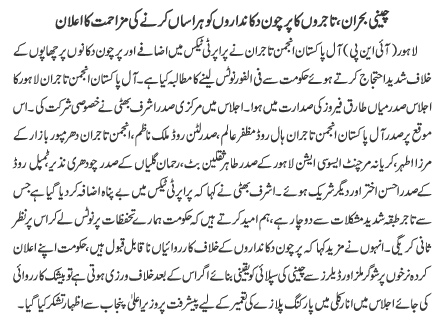 چینی بحران، تاجروں کا پرچون دکانداروں کو ہراساں کرنے کی مزاحمت کا اعلان
لاہور (آئی این پی) آل پاکستان انجمن تاجران نے پراپرٹی ٹیکس میں اضافے اور پرچون دکانوں پر چھاپوں کے
خلاف شدید احتجاج کرتے ہوئے حکومت سے فی الفور نوٹس لینے کا مطالبہ کیا ہے۔ آل پاکستان انجمن تاجران لاہور کا
اجلاس صدر میاں طارق فیروز کی صدارت میں ہوا۔ اجلاس میں مرکزی صدر اشرف بھٹی نے خصوصی شرکت کی۔ اس
موقع پر صدر آل پاکستان انجمن تاجران ہال روڈ مظفر عالم، صدر لٹن روڈ ملک ناظم، انجمن تاجران دھرمپور بازار کے
مرزا اطہر، کریانہ مرچنٹ ایسوسی ایشن لاہور کے صدر طاہر ثقلین بٹ، رحمان گلیاں کے صدر چودھری نذیر، ٹمپل روڈ
کے صدر احسن اختر اور دیگر شریک ہوئے۔ اشرف بھٹی نے کہا کہ پراپرٹی ٹیکس میں بے پناہ اضافہ کر دیا گیا ہے جس
سے تاجر طبقہ شدید مشکلات سے دوچار ہے، ہم امید کرتے ہیں کہ حکومت ہمارے تحفظات پر نوٹس لے کر اس پر نظر
ثانی کریگی۔ انہوں نے مزید کہا کہ پرچون دکانداروں کے خلاف کارروائیاں ناقابل قبول ہیں، حکومت اپنے اعلان
کردہ نرخوں پر شوگر ملز اور ڈیلرز سے چینی کی سپلائی کو یقینی بنائے اگر اس کے بعد خلاف ورزی ہوتی ہے تو بیشک کارروائی
کی جائے اجلاس میں انارکلی میں پارکنگ پلازے کی تعمیر کے لیے پیشرفت پر وزیراعلیٰ پنجاب سے اظہار تشکر کیا گیا۔